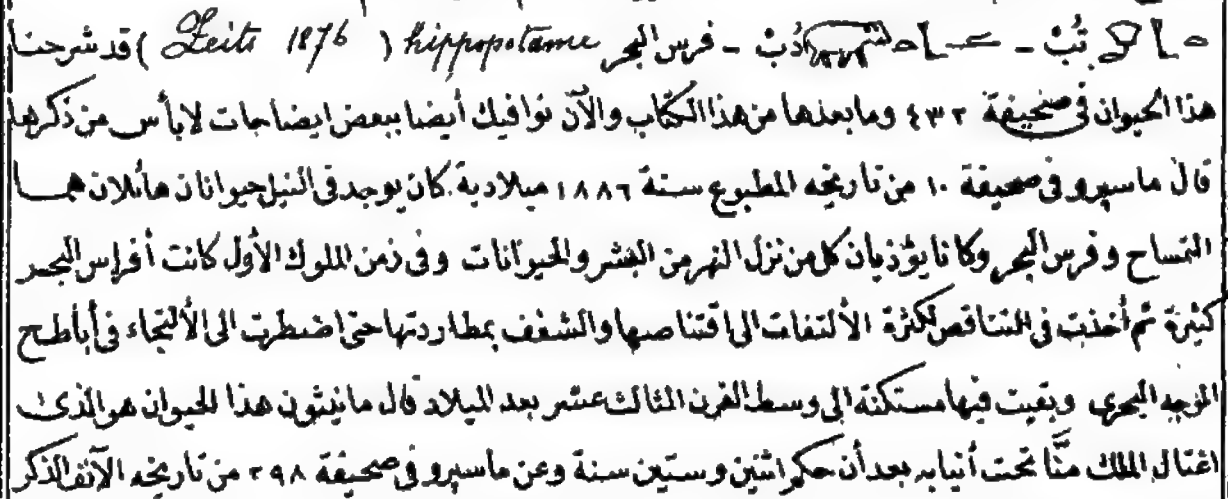 تُبْ - دُبْ - فرس البحر hippopotame ( Zeits 1876 ) قد شرحنا
هذا الحيوان في صحيفة ٤٣٢ وما بعدها من هذا الكتاب والآن نوافيك أيضا ببعض ايضاحات لا بأس من ذكرها
قال ماسپرو في صحيفة ١٠ من تاريخه المطبوع سنة ١٨٨٦ ميلادية . كان يوجد في النيل حيوانان هائلان هما
التمساح وفرس البحر وكانا يؤذيان كل من نزل النهر من البشر والحيوانات وفي زمن الملوك الأول كانت أفراس البحر
كثيرة ثم أخذت في التناقص لكثرة الألتفات الى اقتناصها والشغف بمطاردتها حتى اضطرت الى الألتجاء في أباطح
الوجه البحري وبقيت فيها مستكنة الى وسط القرن الثالث عشر بعد الميلاد قال مانيثون هذا الحيوان هو الذى
اغتال الملك منَّا تحت أنيابه بعد أن حكم اثنين وستين سنة وعن ماسپرو في صحيفة ٣٩٨ من تاريخه الآنف الذكر